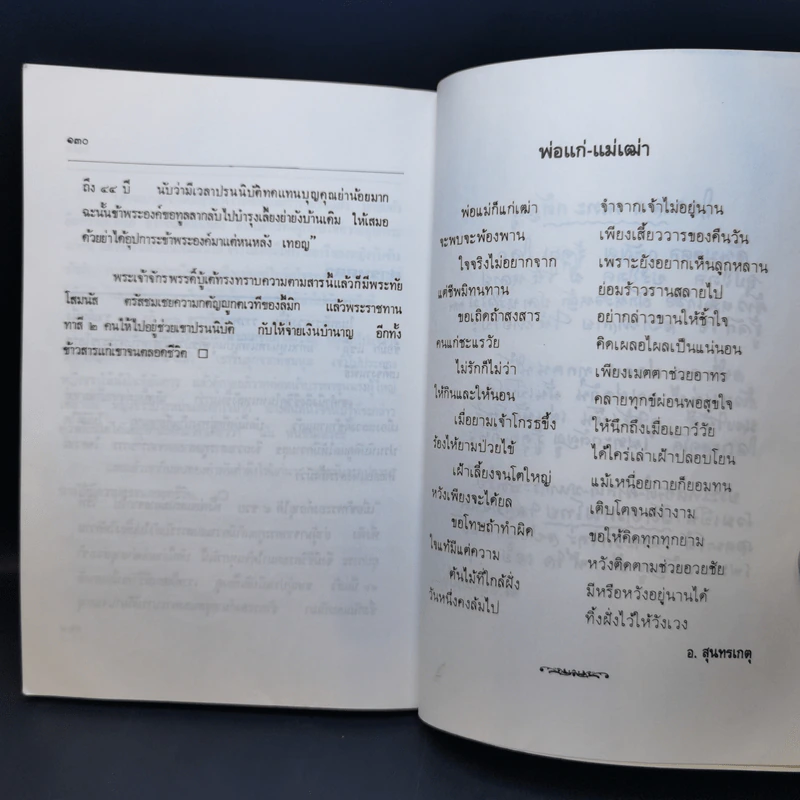 ๑๓๐
ถึง ๔๔ ปี นับว่ามีเวลาปรนนิบัติทดแทนบุญคุณย่าน้อยมาก
ฉะนั้นข้าพระองค์ขอทูลลากลับไปบำรุงเลี้ยงย่ายังบ้านเดิม ให้เสมอ
ด้วยย่าได้อุปการะข้าพระองค์มาแต่หนหลัง เทอญ”
พระเจ้าจักรพรรดิ์บู๊เต้ทรงทราบความตามสารนี้แล้วก็มีพระทัย
โสมนัส ตรัสชมเชยความกตัญญูกตเวทีของลิมิก แล้วพระราชทาน
ทาสี ๒ คนให้ไปอยู่ช่วยเขาปรนนิบัติ กับให้จ่ายเงินบำนาญ อีกทั้ง
ข้าวสารแก่เขาจนตลอดชีวิต □
พ่อแก่-แม่เฒ่า
พ่อแม่ก็แก่เฒ่า จำจากเจ้าไม่อยู่นาน
จะพบจะพ้องพาน เพียงเสี้ยววารของคืนวัน
ใจจริงไม่อยากจาก เพราะยังอยากเห็นลูกหลาน
แต่ชีพมิทนทาน ย่อมร้าวรานสลายไป
ขอเถิดถ้าสงสาร อย่ากล่าวขานให้ช้ำใจ
คนแก่ชะแรวัย คิดเผลอไผลเป็นแน่นอน
ไม่รักก็ไม่ว่า เพียงเมตตาช่วยอาทร
ให้กินและให้นอน คลายทุกข์ผ่อนพอสุขใจ
เมื่อยามเจ้าโกรธขึ้ง ให้นึกถึงเมื่อเยาว์วัย
ร้องไห้ยามป่วยไข้ ได้ใครเล่าเฝ้าปลอบโยน
เฝ้าเลี้ยงจนโตใหญ่ แม้เหนื่อยกายก็ยอมทน
หวังเพียงจะได้ยล เติบโตจนสง่างาม
ขอโทษถ้าทำผิด ขอให้คิดทุกทุกยาม
ใจแท้มีแต่ความ หวังติดตามช่วยอวยชัย
ต้นไม้ที่ใกล้ฝั่ง มีหรือหวังอยู่นานได้
วันหนึ่งคงล้มไป ทิ้งฝั่งไว้ให้วังเวง
อ. สุนทรเกตุ